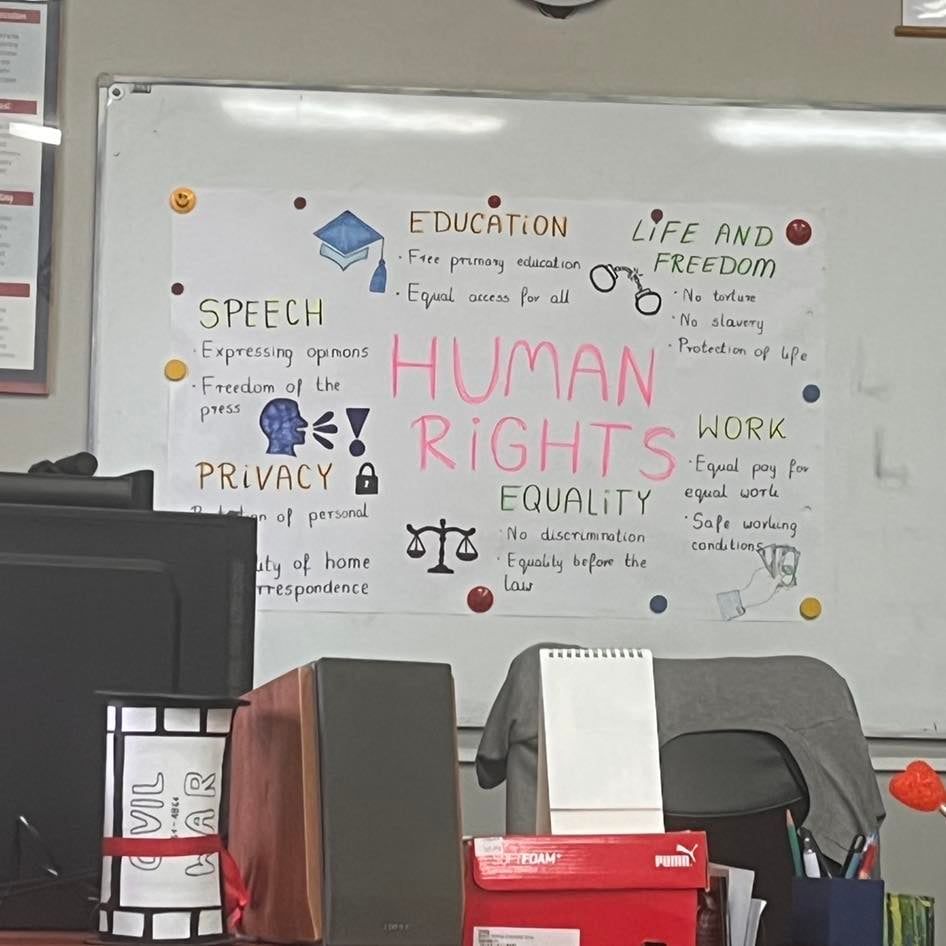 EDUCATION
· Free primary education
· Equal access for all
LIFE AND
FREEDOM
· No torture
· No slavery
· Protection of life
SPEECH
· Expressing opinions
· Freedom of the
press
HUMAN
RIGHTS
WORK
· Equal pay for
equal work
· Safe working
conditions
PRIVACY
of personal
of home
EQUALITY
· No discrimination
· Equality before the
law
CIVIL
WAR
SOFTFOAM+
PUMA